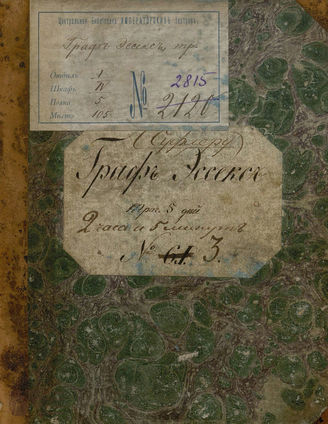 Центральная Библіотека ИМПЕРАТОРСКИХЪ театровъ.
Графъ Эссексъ, тр.
Отдѣлъ 1
Шкафъ IV
Полка 5
Мѣсто 105
№ 2815
2120
(Суфлеру)
Графъ Эссексъ
Тр. 5 дѣй
2 часа и 5 минутъ
№ 61 3.